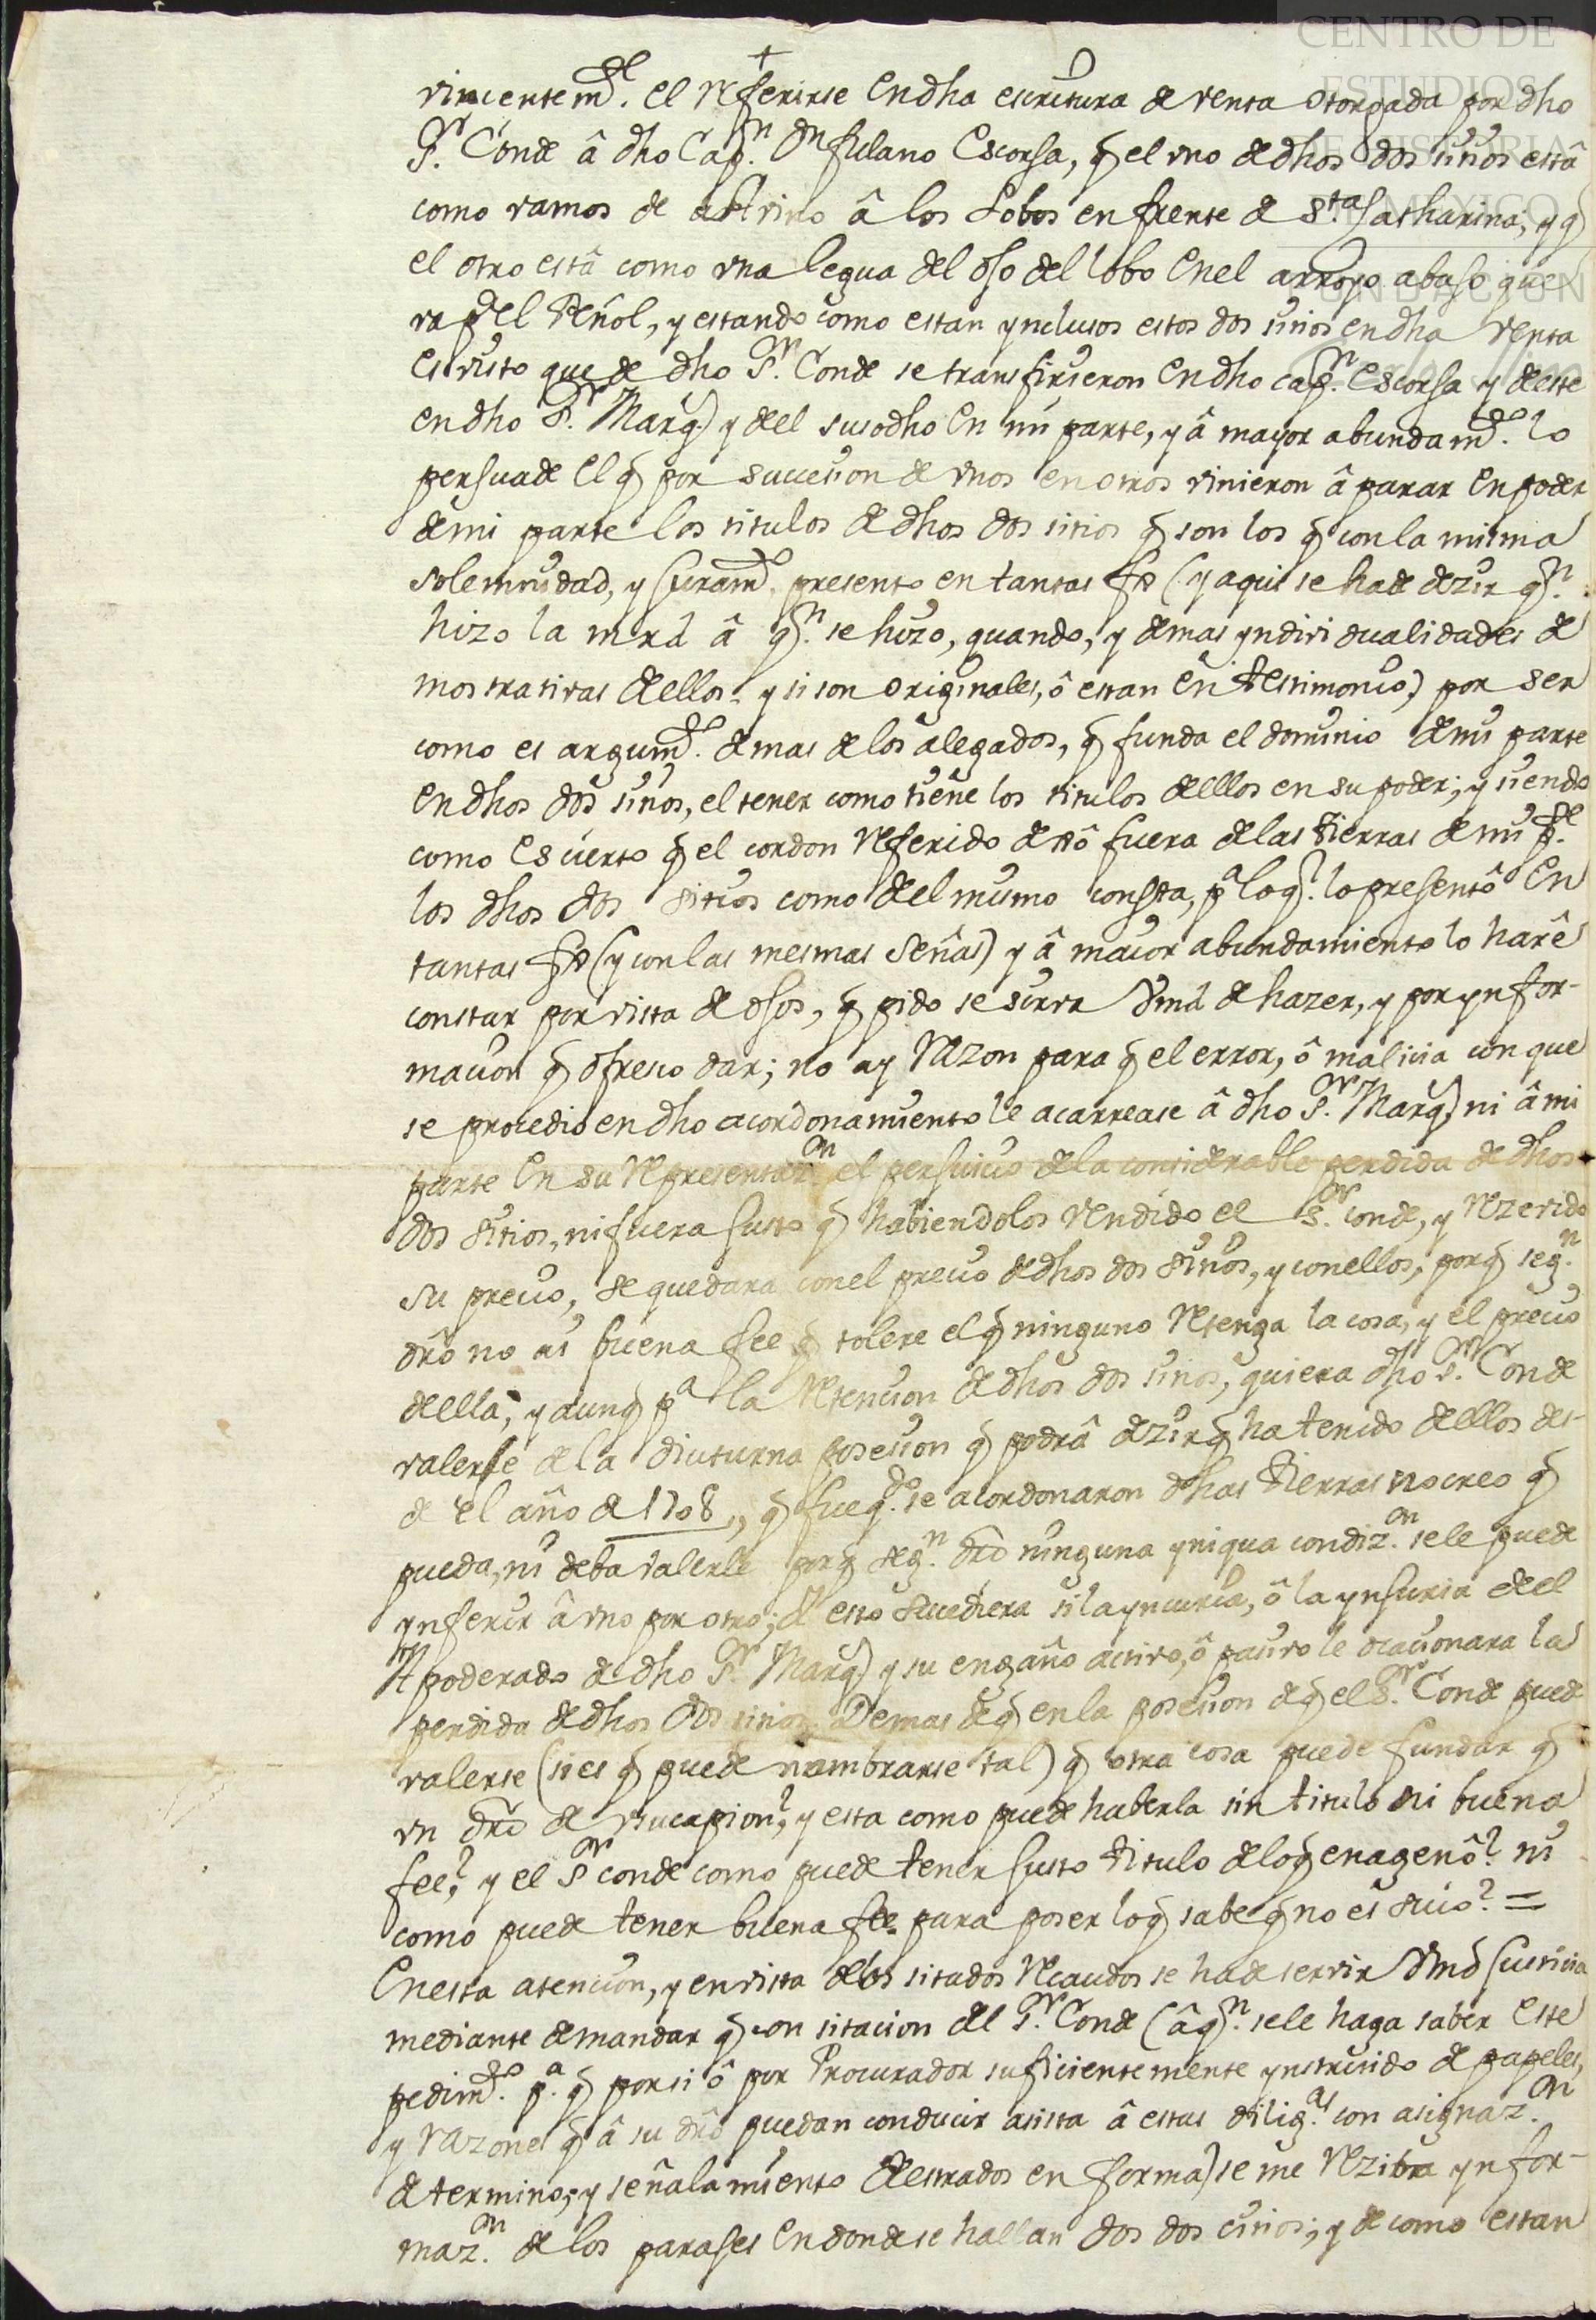 CENTRO DE
ESTUDIOS
DE HISTORIA
DE MEXICO
FUNDACION
vincentemte. el referirse en dha escritura de venta otorgada por dho
Sr. Conde â dho Capn. Dn fulano Escorsa, q el vno de dhos dos sitios estâ
como vamos de â los Lobos en frente de Sta Catharina; y q
el otro estâ como vna legua del ojo del lobo en el arroyo abajo que
va pa el Peñol, y estando como estan ynclusos estos dos sitios en dha venta
es visto que de dho Sr. Conde se transfirieron en dho capn. Escorsa y deste
en dho Sr. Marq. y del susodho en mi parte, y â mayor abundamto. lo
persuade el q por succesion de vnos en otros vinieron â parar en poder
de mi parte los titulos de dhos dos sitios q son los q con la misma
solemnidad, y juramto. presento en tantas fs (y aqui se ha de dezir qn.
hizo la mrd â qn. se hizo, quando, y demas yndividualidades de
mostrativas dellos, y si son originales, ô estan en testimonio) por ser
como es argumto. demas de los alegados, q funda el dominio de mi parte
en dhos dos sitios, el tener como tiene los titulos dellos en su poder; y siendo
como es cierto q el cordon referido dexô fuera de las tierras de mi pte.
los dhos dos sitios como del mismo consta, pa lo q. lo presentô en
tantas fs (y con las mesmas señas) y â maior abundamiento lo harê
constar por vista de ojos, q pido se sirva Vmd de hazer, y por ynfor-
macion q ofresco dar; no ay razon para q el error, ô malicia con que
se procedio en dho acordonamiento le acarrease â dho Sr. Marq. ni â mi
parte en su representazon. el perjuicio de la considerable perdida de dhos
dos sitios, ni fuera justo q habiendolos vendido el Sr. conde, y rezevido
su precio, se quedara con el precio de dhos dos sitios, y con ellos, porq segn.
dro no ai buena fee q tolere el q ninguno retenga la cosa, y el precio
della, y aunq pa la retencion de dhos dos sitios, quiera dho Sr. Conde
valerse de la diuturna posesion q podrâ dezir q ha tenido dellos des-
de el año de 1708, q fue qdo. se acordonaron dhas tierras no creo q
pueda, ni deba valerle porq segn. dro ninguna yniqua condizon. se le puede
ynferir â vno por otro; y esto sucediera si la yncuria, ô la ynjuria del
Apoderado de dho Sr. Marq. y su engaño activo, ô pasivo le ocacionara la
perdida de dhos dos sitios. Demas de q en la posesion de q el Sr. Conde puede
valerse (si es q puede nombrarse tal) q otra cosa puede fundar q
vn dro de vsucapion? y esta como puede haberla sin titulo ni buena
fee? y el Sr conde como puede tener justo titulo de lo q enagenô? ni
como puede tener buena fee para poser lo q sabe q no es suio? =
En esta atencion, y en vista de los sitados recaudos se ha de servir Vmd justicia
mediante demandar q con sitacion del Sr. Conde (â qn. se le haga saber este
pedimto. pa. q por si ô por Procurador suficientemente ynstruido de papeles,
y razones q â su dro puedan conducir asista â estas diligas. con asignazon.
de termino, y señalamiento de estrados en forma) se me reziba ynfor-
mazon. de los parajes en donde se hallan dos dos citios; y de como estan